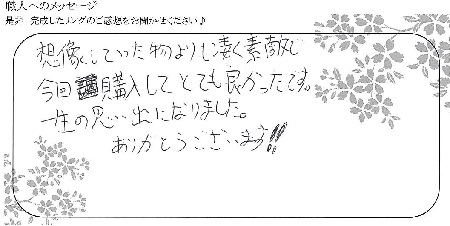 職人へのメッセージ
是非、完成したリングのご感想をお聞かせください♪
想像していた物よりも凄く素敵で
今回購入してとても良かったです。
一生の思い出になりました。
ありがとうございます!!